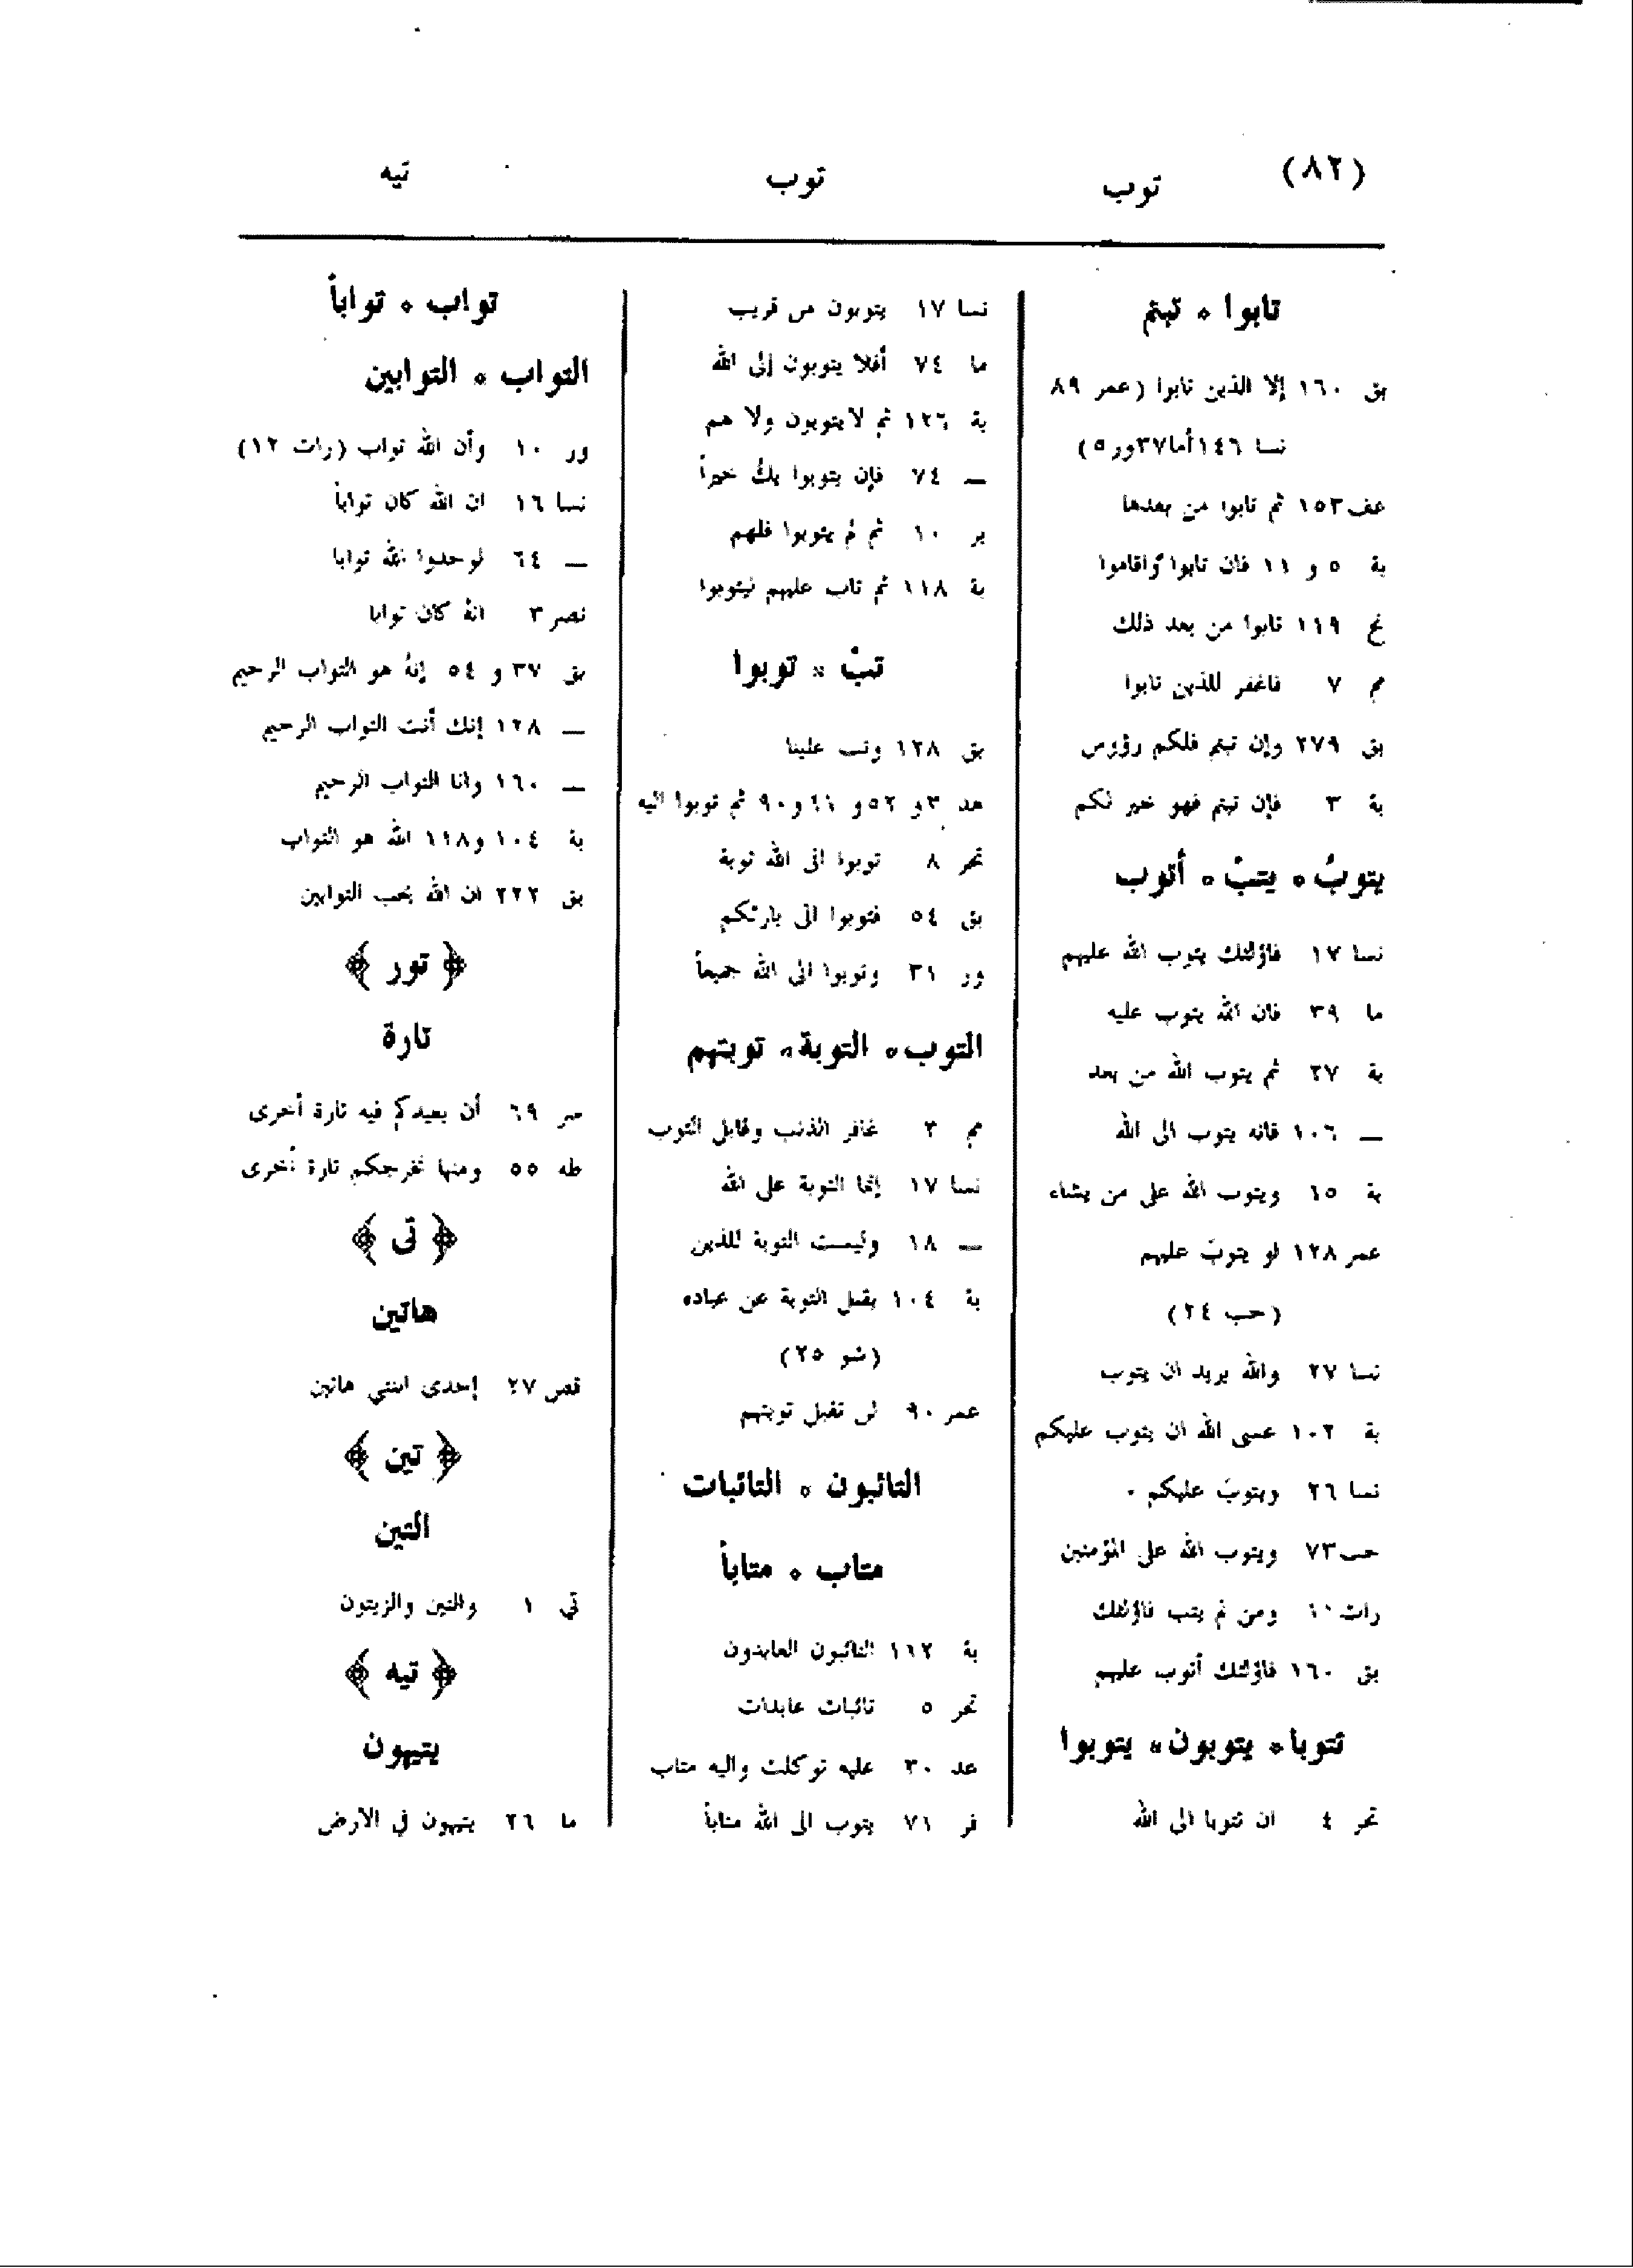 (٨٢)
توب
توب
تيه
تابوا * تبتم
بق ١٦٠ إلا الذين تابوا (عمر ٨٩
نسا ١٤٦ أما ٣٧ ور ٥)
عف ١٥٣ ثم تابوا من بعدها
بة ٥ و ١١ فان تابوا واقاموا
نح ١١٩ تابوا من بعد ذلك
مم ٧ فاغفر للذين تابوا
بق ٢٧٩ وإن تبتم فلكم رؤوس
بة ٣ فإن تبتم فهو خير لكم
يتوبُ * يتبْ * أتوب
نسا ١٧ فاؤلئك يتوب الله عليهم
ما ٣٩ فان الله يتوب عليه
بة ٢٧ ثم يتوب الله من بعد
— ١٠٦ فانه يتوب الى الله
بة ١٥ ويتوب الله على من يشاء
عمر ١٢٨ لو يتوبَ عليهم
(حب ٢٤)
نسا ٢٧ والله يريد ان يتوب
بة ١٠٢ عسى الله ان يتوب عليكم
نسا ٢٦ ويتوبَ عليكم ٠
حب ٧٣ ويتوب الله على المؤمنين
رات ١٠ ومن لم يتب فاؤلئك
بق ١٦٠ فاؤلئك أتوب عليهم
تتوبا * يتوبون * يتوبوا
تحر ٤ ان تتوبا الى الله
نسا ١٧ يتوبون من قريب
ما ٧٤ أفلا يتوبون إلى الله
بة ١٢٦ ثم لا يتوبون ولا هم
— ٧٤ فإن يتوبوا يكُ خيراً
بر ١٠ ثم لم يتوبوا فلهم
بة ١١٨ ثم تاب عليهم ليتوبوا
تبْ * توبوا
بق ١٢٨ وتب علينا
هد ٣ و ٥٢ و ٦١ و ٩٠ ثم توبوا اليه
تحر ٨ توبوا الى الله توبة
بق ٥٤ فتوبوا الى بارئكم
ور ٣١ وتوبوا الى الله جميعاً
التوب * التوبة * توبتهم
مم ٣ غافر الذنب وقابل التوب
نسا ١٧ إنما التوبة على الله
— ١٨ وليست التوبة للذين
بة ١٠٤ يقبل التوبة عن عباده
(شو ٢٥)
عمر ٩٠ لن تقبل توبتهم
التائبون * التائبات
متاب * متاباً
بة ١١٢ التائبون العابدون
تحر ٥ تائبات عابدات
عد ٣٠ عليه توكلت واليه متاب
فر ٧١ يتوب الى الله متاباً
تواب * تواباً
التواب * التوابين
ور ١٠ وأن الله تواب (رات ١٢)
نسا ١٦ ان الله كان تواباً
— ٦٤ لوجدوا الله توابا
نصر ٣ انه كان توابا
بق ٣٧ و ٥٤ إنه هو التواب الرحيم
— ١٢٨ إنك أنت التواب الرحيم
— ١٦٠ وانا التواب الرحيم
بة ١٠٤ و ١١٨ الله هو التواب
بق ٢٢٢ ان الله يحب التوابين
﴿ تور ﴾
تارة
سر ٦٩ أن يعيدكم فيه تارة أخرى
طه ٥٥ ومنها نخرجكم تارة أخرى
﴿ تى ﴾
هاتين
قص ٢٧ إحدى ابنتي هاتين
﴿ تين ﴾
التين
تي ١ والتين والزيتون
﴿ تيه ﴾
يتيهون
ما ٢٦ يتيهون في الارض